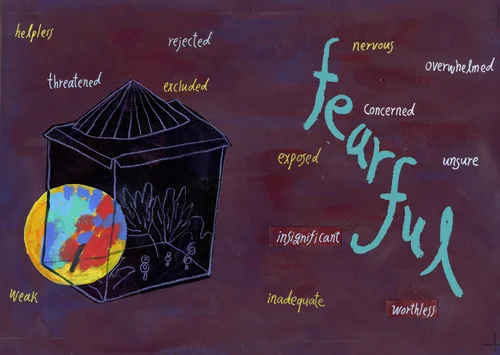 helpless
rejected
threatened
excluded
weak
nervous
overwhelmed
Concerned
fearful
exposed
unsure
insignificant
inadequate
worthless